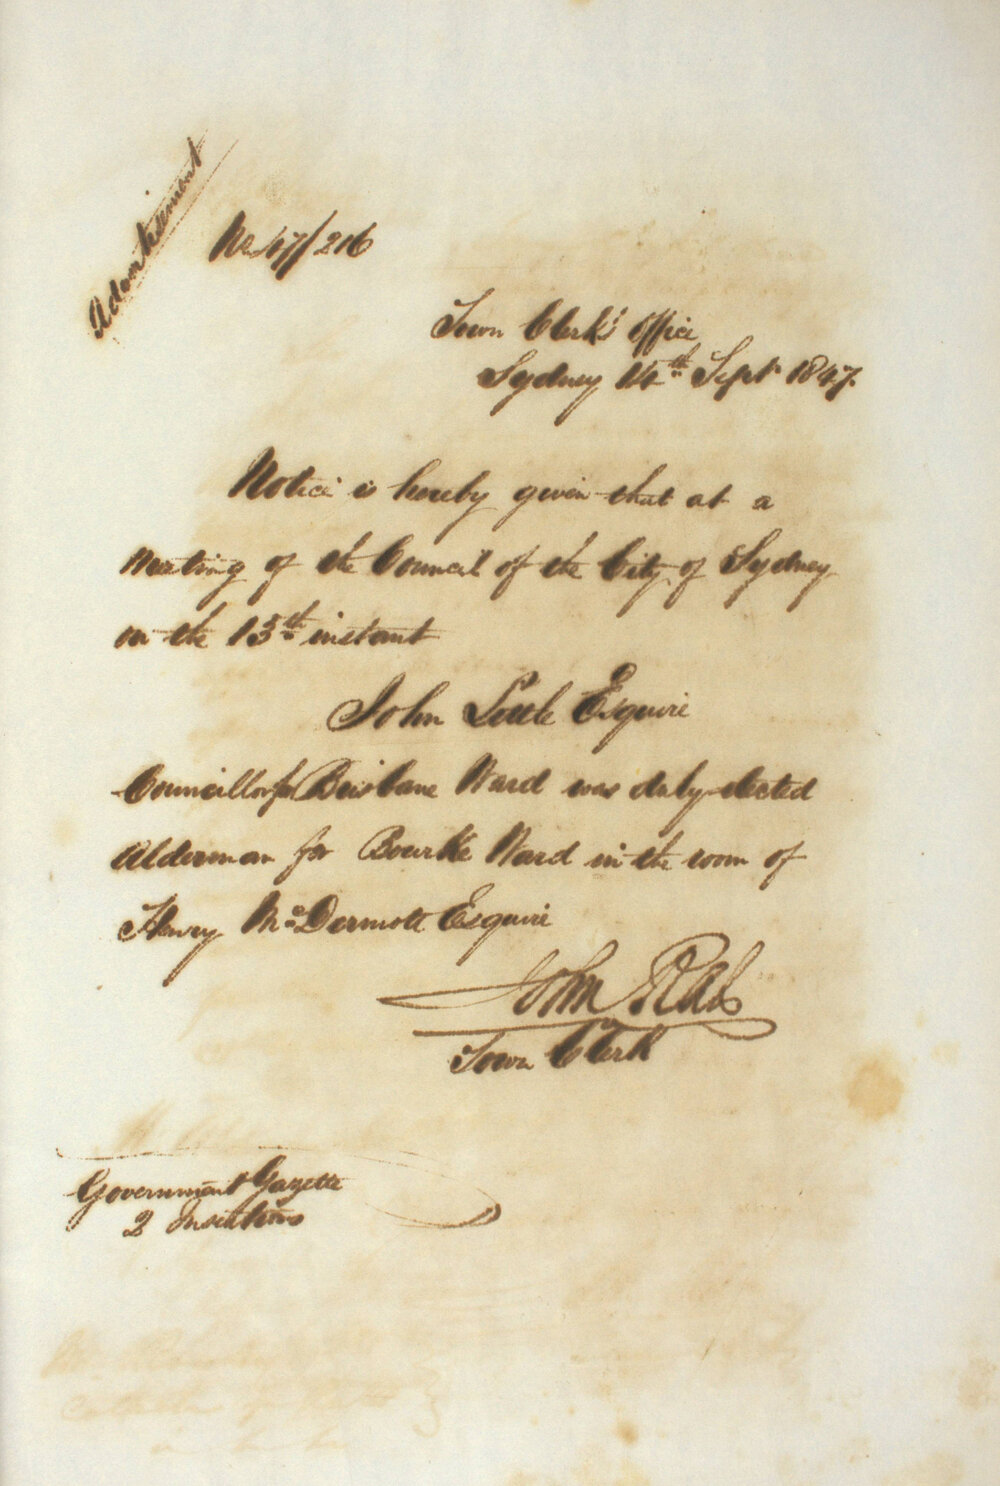 Advertisement
No 47/216
Town Clerk's Office
Sydney 14th Sept 1847.
Notice is hereby given that at a
Meeting of the Council of the City of Sydney
on the 13th instant
John Little Esquire
Councillor for Brisbane Ward was duly elected
Alderman for Bourke Ward in the room of
Henry McDermott Esquire
John Rae
Town Clerk
Government Gazette
2 Insertions